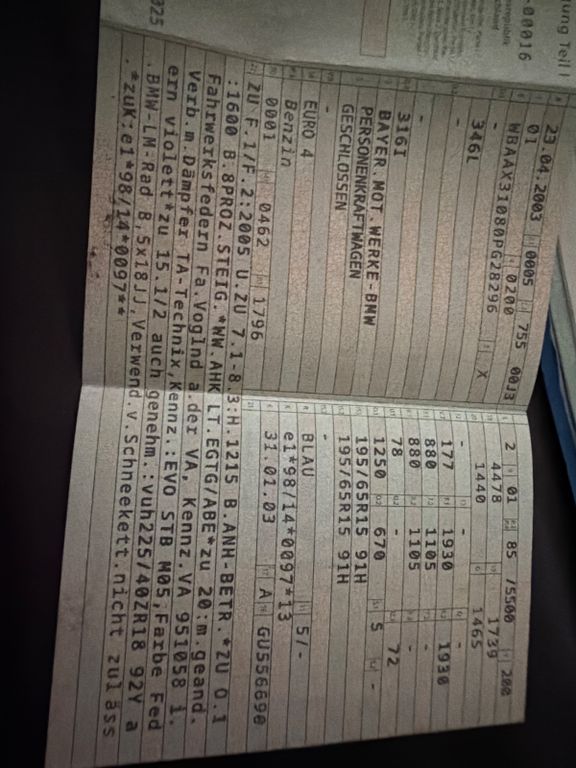 ung Teil I
-00016
025
23.04.2003 0005 755 00J3
01
WBAAX31080PG28296 X
- 0200
346L
-
-
316I
BAYER.MOT.WERKE-BMW
PERSONENKRAFTWAGEN
GESCHLOSSEN
-
EURO 4
Benzin
0001 0462 1796
2 01 85 /5500 200
4478 1739
1440 1465
- - -
177 1930 1930
880 1105 -
880 1105 -
78 - 72
1250 670 5 -
195/65R15 91H
195/65R15 91H
-
BLAU 5/-
e1*98/14*0097*13
31.01.03 A GU556690
ZU F.1/F.2:2005 U.ZU 7.1-8.3:H.1215 B.ANH-BETR.*ZU O.1
:1600 B.8PROZ.STEIG.*WW.AHK LT.EGTG/ABE*zu 20:m.geand.
Fahrwerksfedern Fa.Voglnd a.der VA, Kennz.VA 951058 i.
Verb.m.Dämpfer TA-Technix,Kennz.:EVO STB M05,Farbe Fed
ern violett*zu 15.1/2 auch genehm.:vuh225/40ZR18 92Y a
.BMW-LM-Rad 8,5x18JJ,Verwend.v.Schneekett.nicht zuläss
.*zuK:e1*98/14*0097**